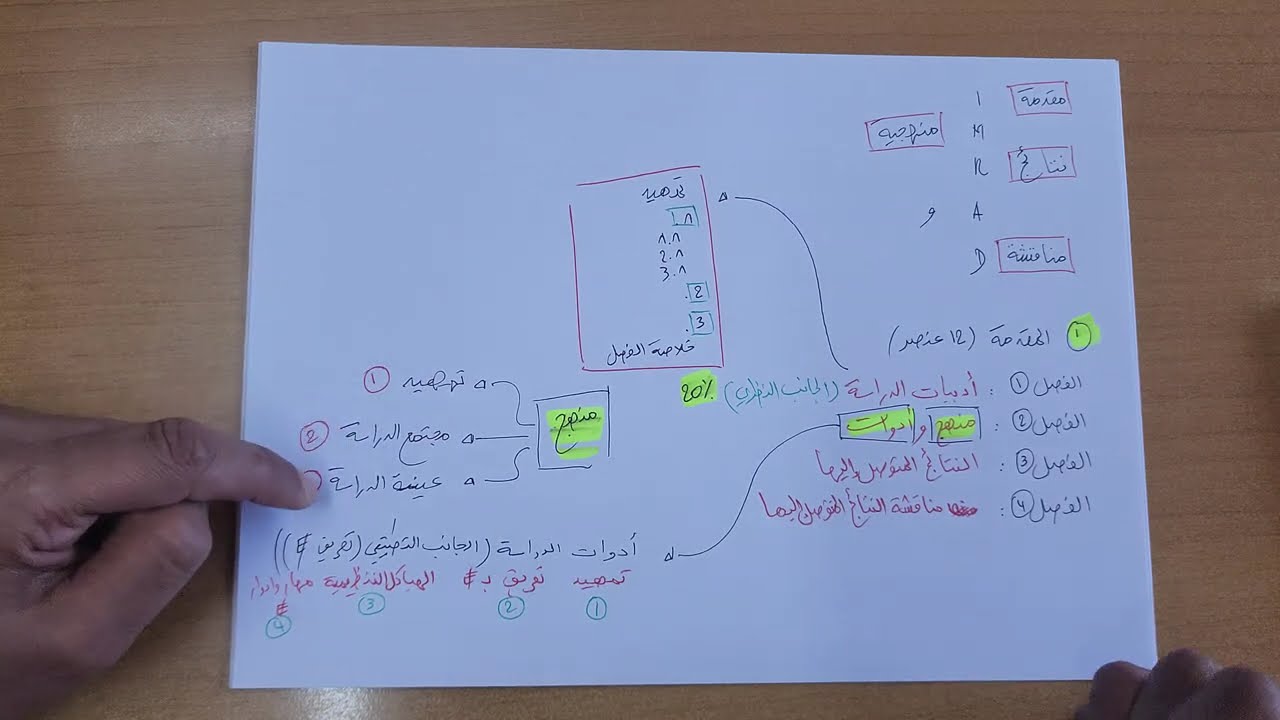 I مقدمة
M منهجية
R نتائج
A و
D مناقشة
① المقدمة (12 عنصر)
الفصل ①: أدبيات الدراسة (الجانب النظري) 20%
الفصل ②: منهج و أدوات
الفصل ③: النتائج المتوصل إليها
الفصل ④: مناقشة النتائج المتوصل إليها
تمهيد
1.
1.1
2.1
3.1
2.
3.
خلاصة الفصل
منهج
① تمهيد
② مجتمع الدراسة
عينة الدراسة
أدوات الدراسة (الجانب التطبيقي (تعريف #))
تمهيد تعريف بـ # الهياكل التنظيمية مهام وأدوار #
① ② ③ ④